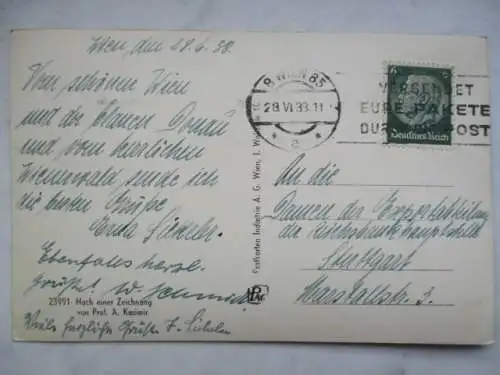 Wien, den 28.6.38.
Vom schönen Wien
und der blauen Donau
und vom herrlichen
Wienerwald sende ich
die besten Grüße
Erna
Ebenfalls herzl.
grüßet W. Schmidt
23991 Nach einer Zeichnung
von Prof. A. Kasimir
Viele herzliche Grüße
Postkarten Industrie A. G. Wien, I.
8 WIEN 85
28.VI.38.11
a
VERSENDET
EURE PAKETE
DURCH POST
6
Deutsches Reich
PAG
An die
Damen der Exportabteilung
der Reichsbankhauptstelle
Stuttgart
Marstallstr. 3.